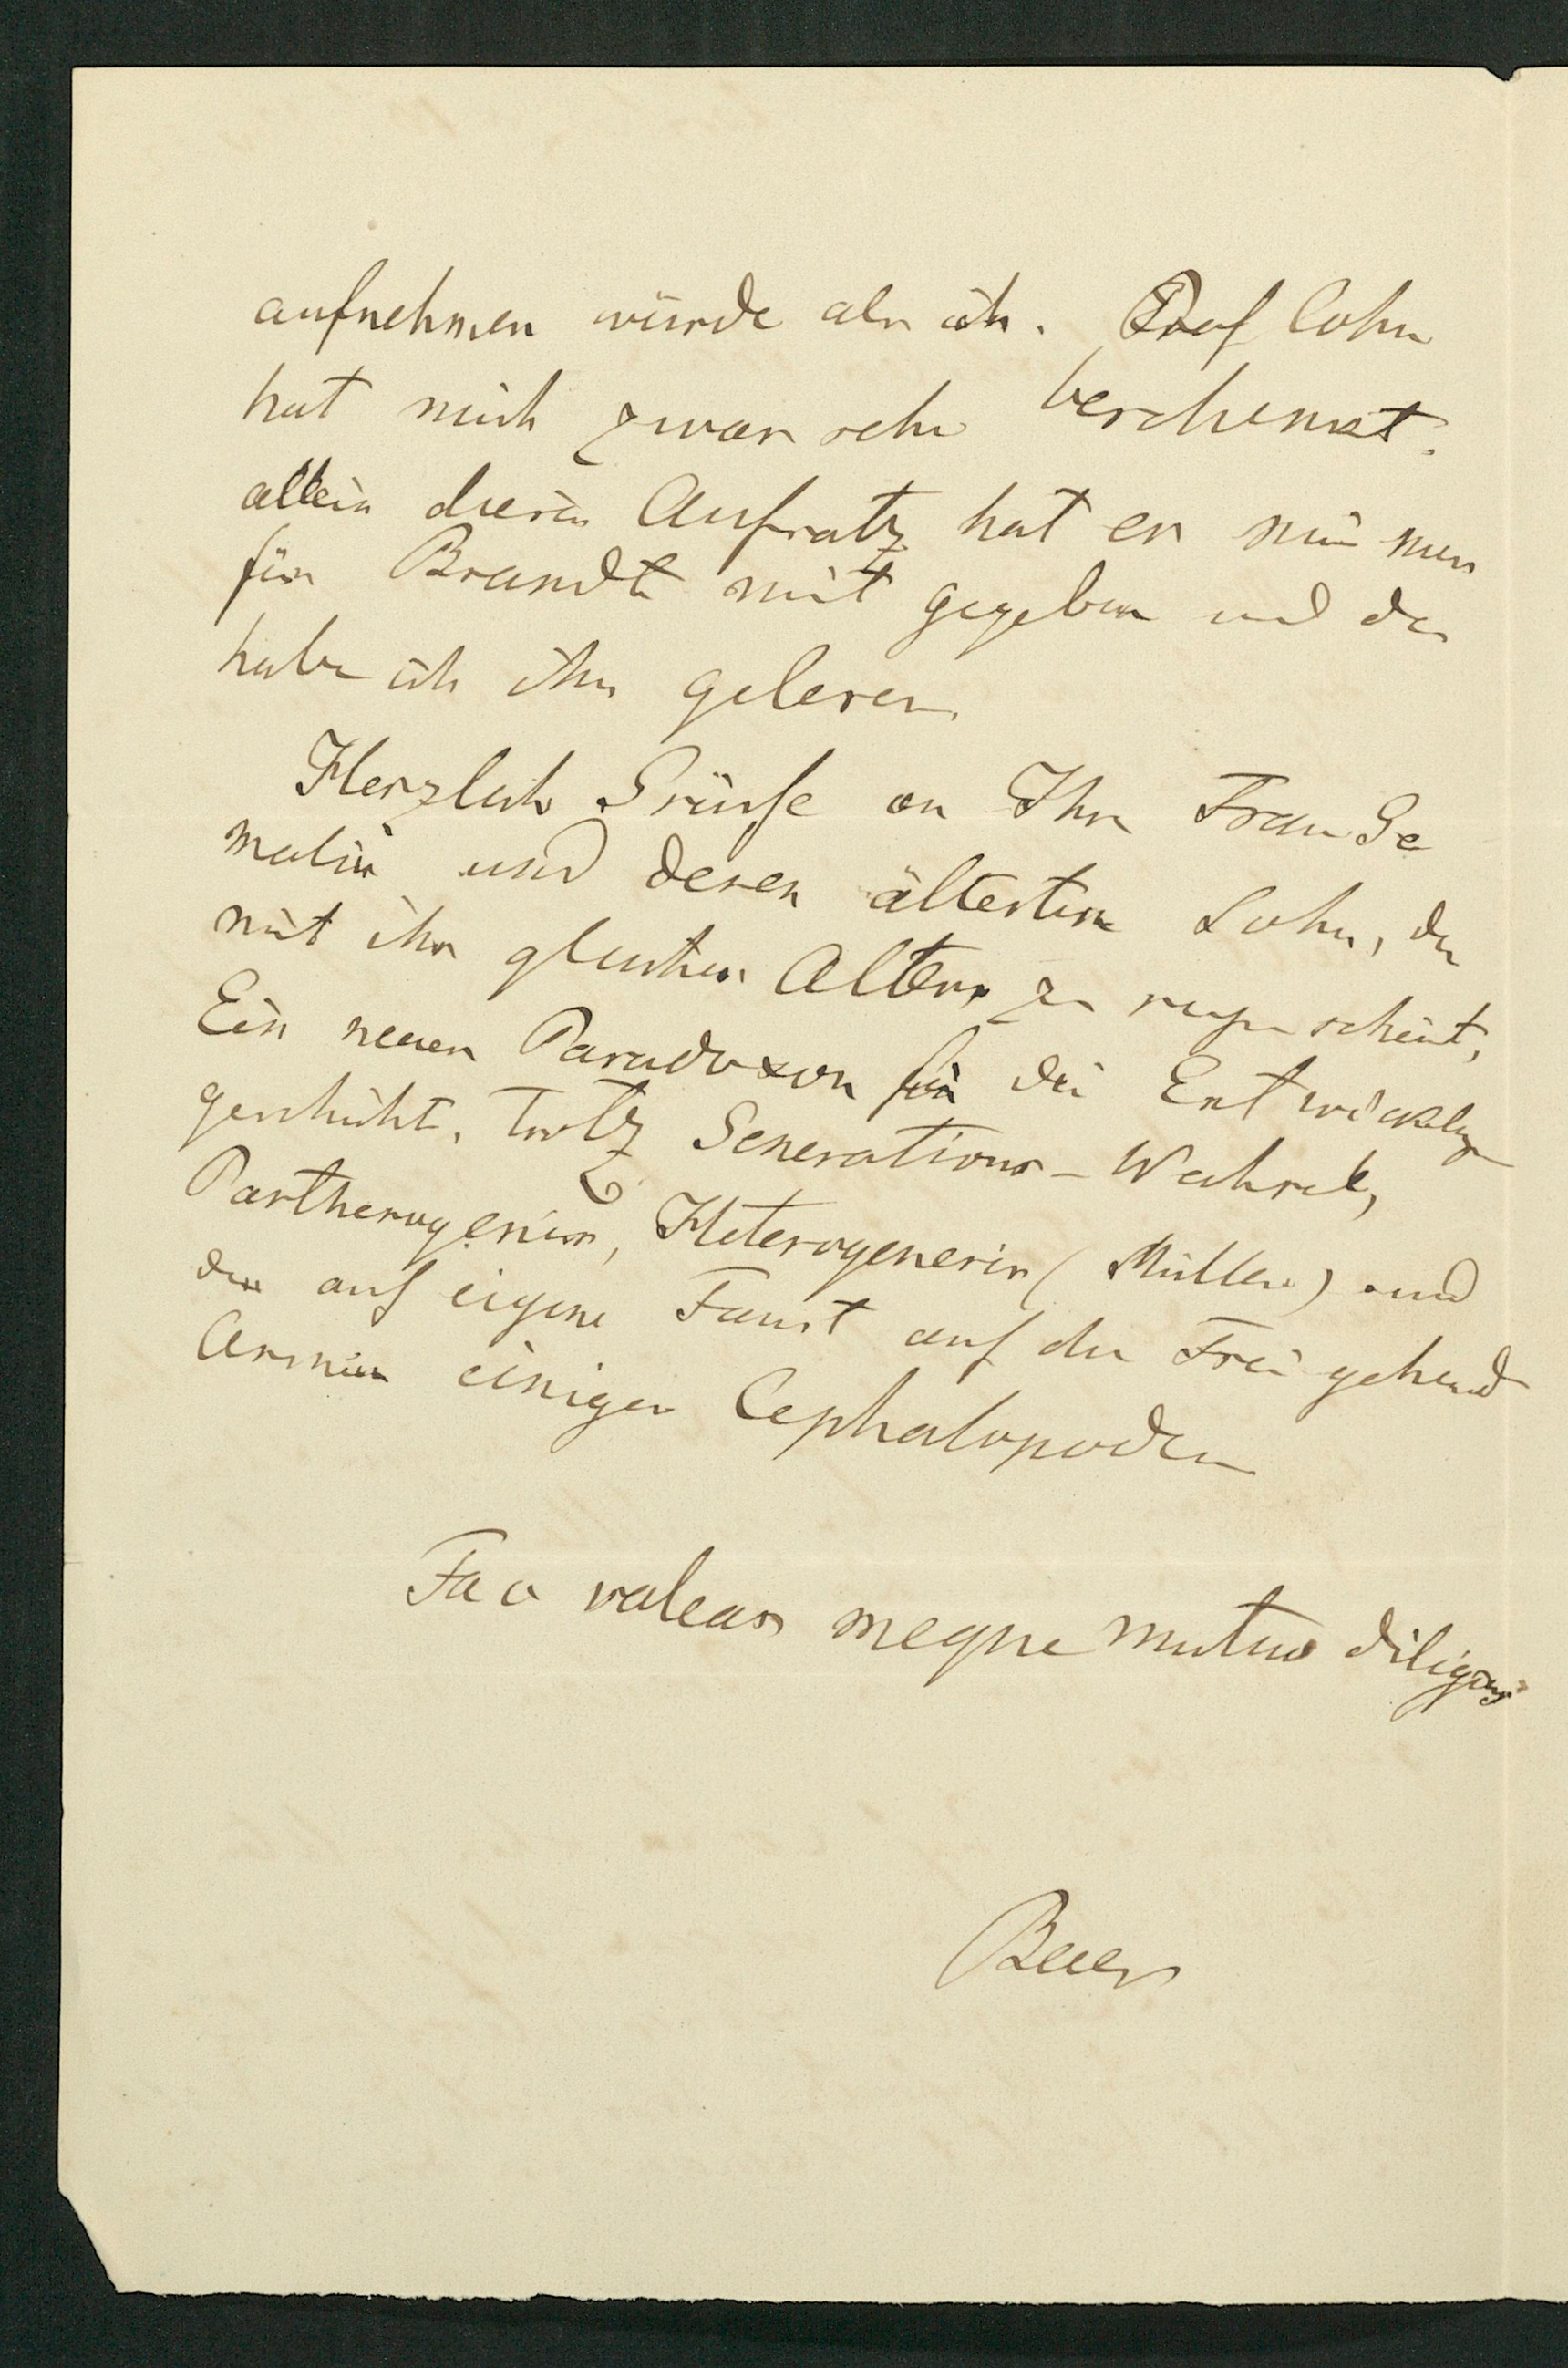 aufnehmen würde als ich. Prof Cohn
hat mich zwar sehr beschenkt.
allein diesen Aufsatz hat er mir nur
für Brandt mit gegeben und da
habe ich ihn gelesen.
Herzliche Grüsse an Ihre Frau Ge
malin und deren ältesten Sohn, der
mit ihr gleichen Alters zu seyn scheint,
Ein neues Paradoxon für die Entwicklungs
geschichte, trotz Generations-Wechsel,
Parthenogenesis, Heterogenesis (Müller) und
der auf eigene Faust auf die Frei gehend
Armen einiger Cephalopoden
Fac valeas meque mutuo diligas
Baer